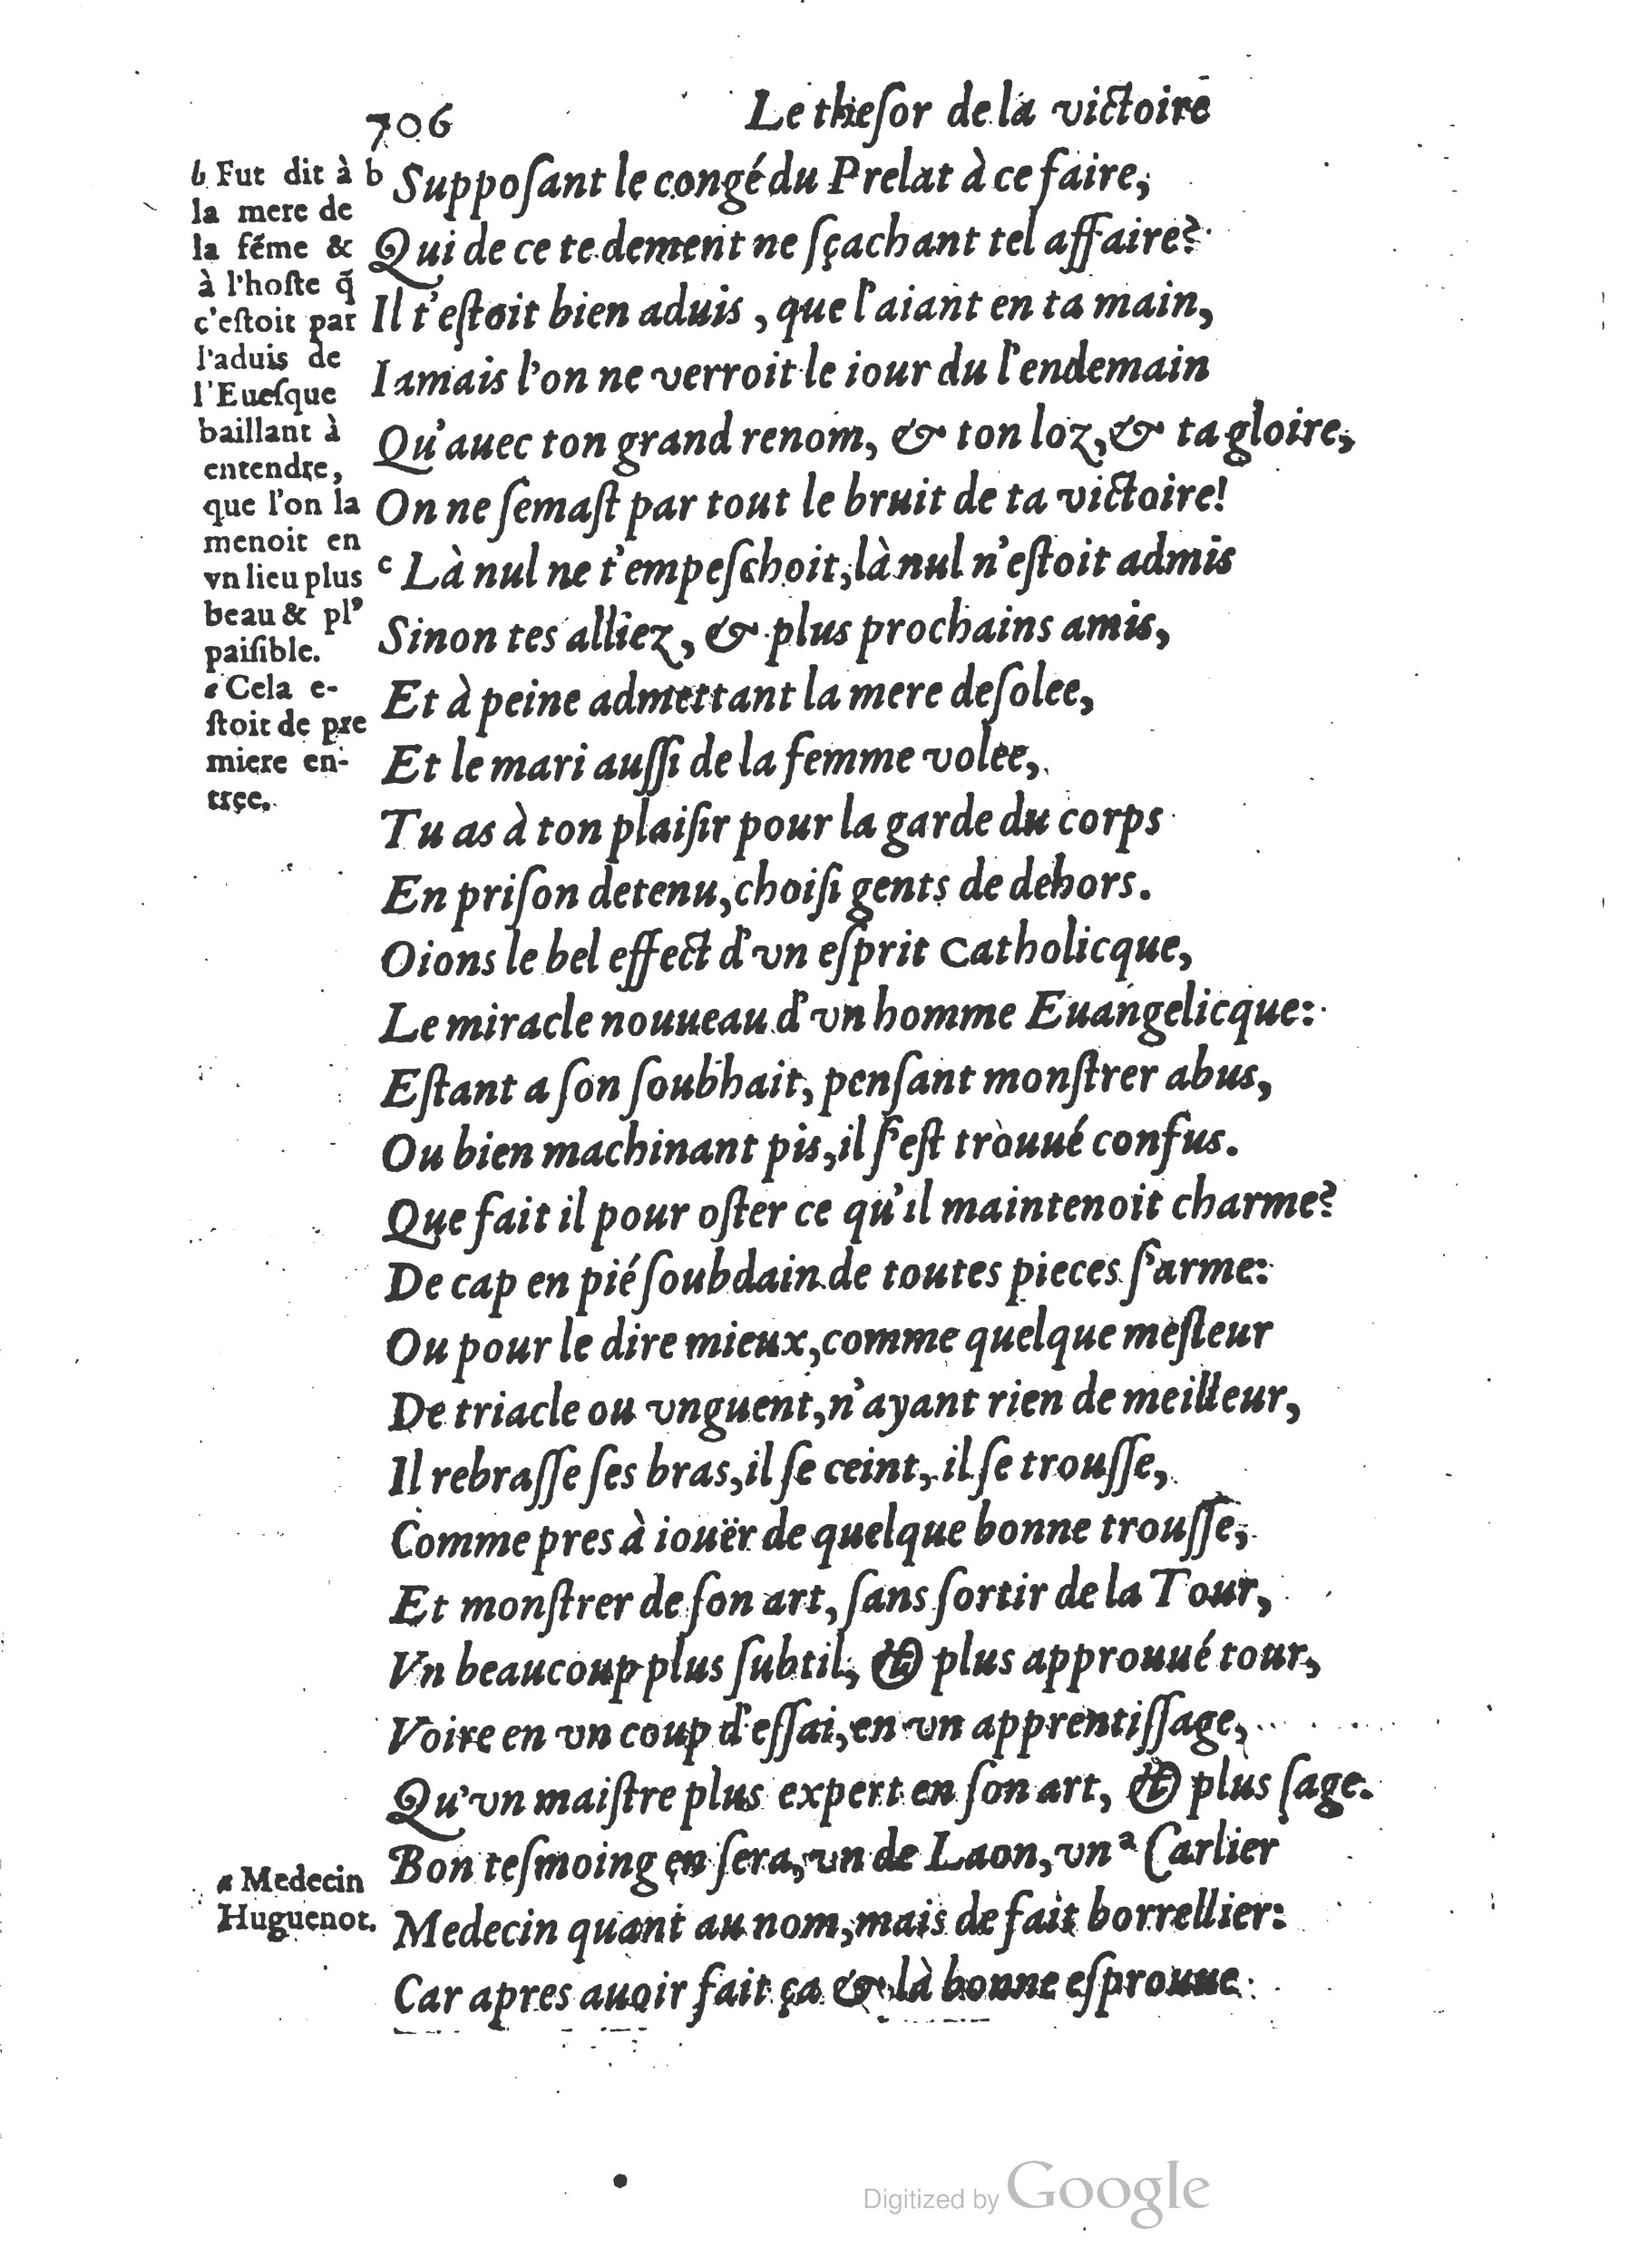 706 Le theſor de la victoire
b Suppoſant le congé du Prelat à ce faire,
Qui de ce te dement ne ſçachant tel affaire?
Il t'eſtoit bien aduis, que l'aiant en ta main,
Iamais l'on ne verroit le iour du l'endemain
Qu'auec ton grand renom, & ton loz, & ta gloire,
On ne ſemaſt par tout le bruit de ta victoire!
c Là nul ne t'empeſchoit, là nul n'eſtoit admis
Sinon tes alliez, & plus prochains amis,
Et à peine admettant la mere deſolee,
Et le mari auſſi de la femme volee,
Tu as à ton plaiſir pour la garde du corps
En priſon detenu, choiſi gents de dehors.
Oions le bel effect d'vn eſprit Catholicque,
Le miracle nouueau d'vn homme Euangelicque:
Eſtant a ſon ſoubhait, penſant monſtrer abus,
Ou bien machinant pis, il ſ'eſt trouué confus.
Que fait il pour oſter ce qu'il maintenoit charme?
De cap en pié ſoubdain de toutes pieces ſ'arme:
Ou pour le dire mieux, comme quelque meſleur
De triacle ou vnguent, n'ayant rien de meilleur,
Il rebraſſe ſes bras, il ſe ceint, il ſe trouſſe,
Comme pres à iouër de quelque bonne trouſſe,
Et monſtrer de ſon art, ſans ſortir de la Tour,
Vn beaucoup plus ſubtil, & plus approuué tour,
Voire en vn coup d'eſſai, en vn apprentiſſage,
Qu'vn maiſtre plus expert en ſon art, & plus ſage.
Bon teſmoing en ſera, vn de Laon, vn a Carlier
Medecin quant au nom, mais de fait borrellier:
Car apres auoir fait ça & là bonne eſprouue
b Fut dit à
la mere de
la fẽme &
à l'hoſte q̃
c'eſtoit par
l'aduis de
l'Eueſque
baillant à
entendre,
que l'on la
menoit en
vn lieu plus
beau & pl'
paiſible.
c Cela e-
ſtoit de pre
miere en-
tree.
a Medecin
Huguenot.
Digitized by Google